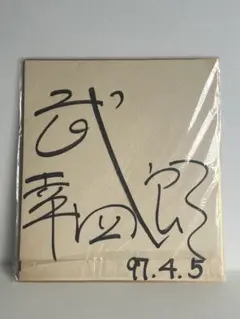 武
幸四郎
97.4.5